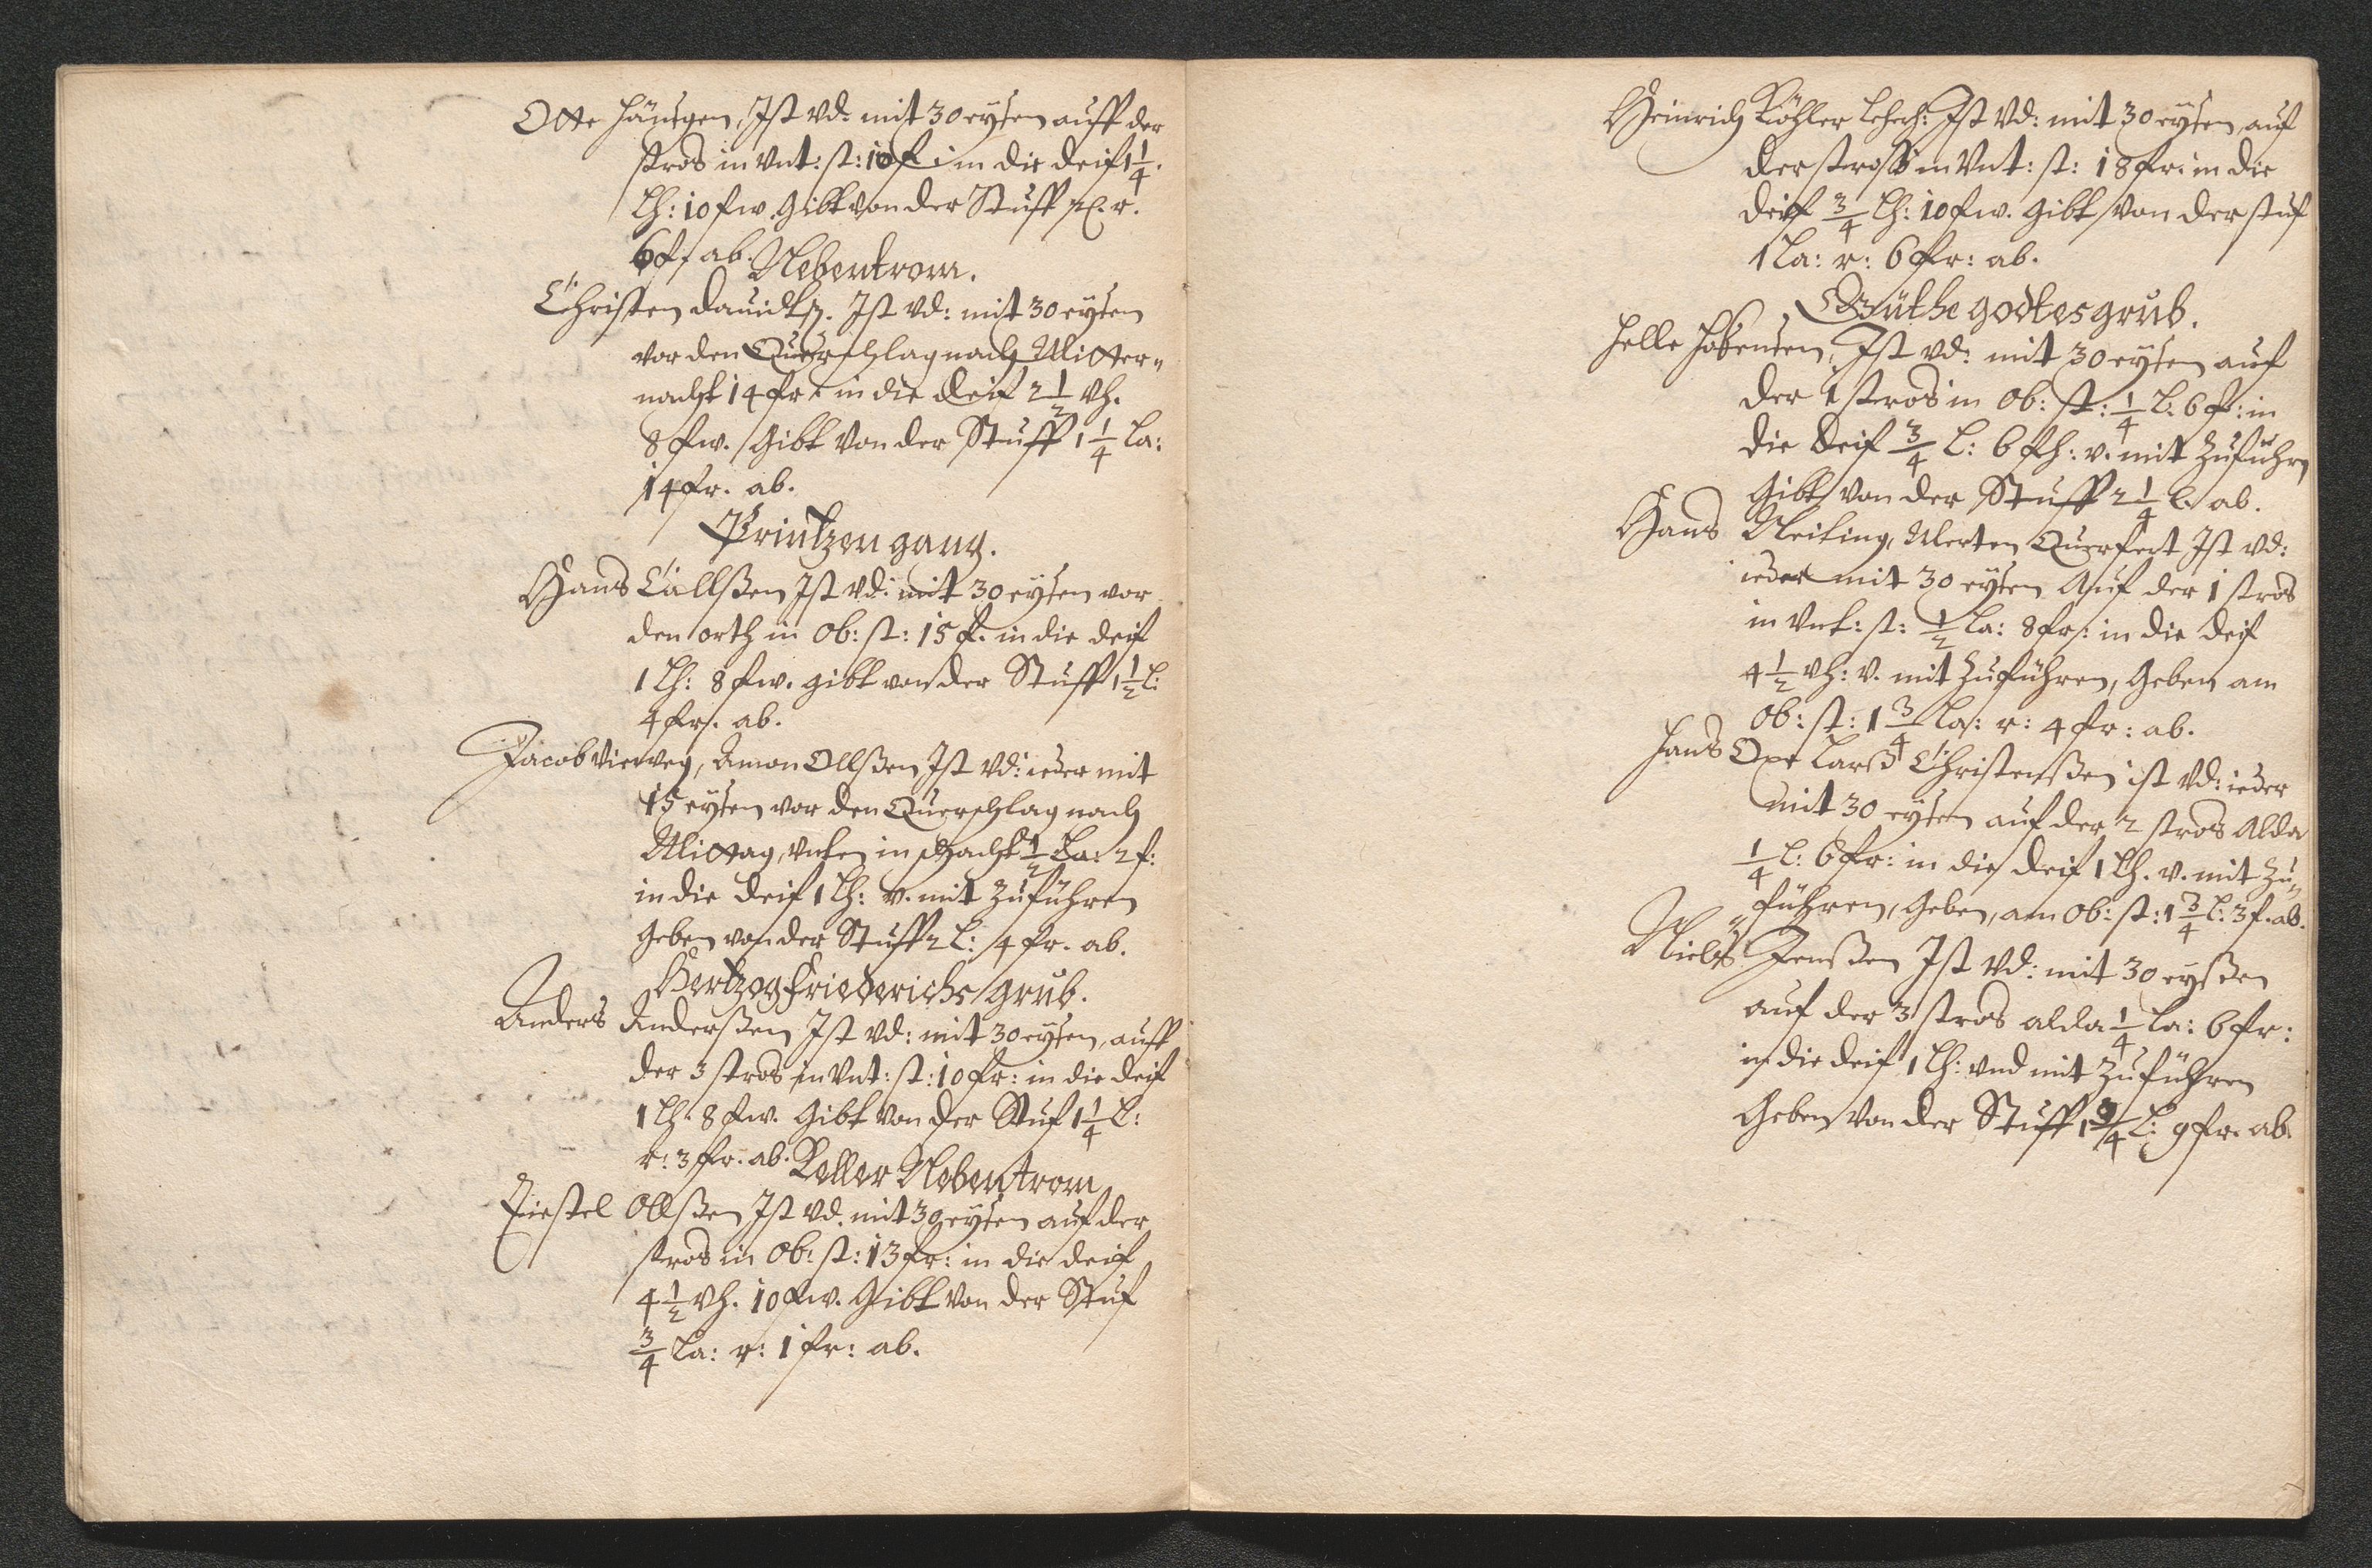 Otte Hänsgen, Ist vd: mit 30 eysen auff der
stros in vnt: st: 10 f in die deif 1 1/4.
Lh: 10 fw. Gibt von der Stuff r.
6 f ab. Nebentrom.
Christen Dauidtß. Ist vd: mit 30 eysen
vor den Querschlag nach Mitter„
nacht 14 fr: in die deif 2 1/2 vh.
8 fw. Gibt von der Stuff 1 1/4 La:
14 fr. ab.
Printzen gang.
Hans Callßen Ist vd: mit 30 eysen vor
den orth in ob: st: 15 f. in die deif
1 Lh: 8 fw. gibt von der Stuff 1 1/2 L:
4 fr. ab.
Jacob Vieweg, Amon Ollßen Ist vd: ieder mit
15 eysen vor den Querschlag nach
Mittag, vnten in schacht 1/2 La: 2 f:
in die deif 1 Lh: v. mit Zuführen
Geben von der Stuff 2 L: 4 fr. ab.
Hertzog Friederichs grub.
Anders Anderßen Ist vd: mit 30 eysen, auff
der 3 stros in vnt: st: 10 fr: in die deif
1 Lh. 8 fw. Gibt von der Stuf 1 1/4 L:
r: 3 fr. ab. Keller Nebentrom
Ollßen Ist vd. mit 30 eysen auf der
stros in ob: st: 13 fr: in die deif
4 1/2 vh. 10 fw. Gibt von der Stuf
3/4 La: r: 1 fr: ab.
Heinrich Köhler Leherh: Ist vd: mit 30 eysen, auf
der stross in vnt: st: 18 fr: in die
deif 3/4 Lh: 10 fw. Gibt von der stuf
1 La: r: 6 fr: ab.
Güthe gottes grub.
Helle Ist vd: mit 30 eysen auf
der 1 stros in ob: st: 1/4 L: 6 fr: in
die deif 3/4 L: 6 fh: v. mit Zuführn
Gibt von der Stuff 2 1/4 L. ab.
Hans Meiting, Merten Querfert Ist vd:
ieder mit 30 eysen Auf der 1 stros
in vnt: st: 1/2 La: 8 fr: in die deif
4 1/2 vh: v. mit Zuführen, Geben am
ob: st: 1 3/4 La: r: 4 fr: ab.
Hans Oxe Larß Christenßen ist vd: ieder
mit 30 eysen auf der 2 stros Alda
1/4 L: 6 fr: in die deif 1 Lh. v. mit Zu„
führen, Geben, am ob: st: 1 3/4 L: 3 f. ab.
Niels Jenßen Ist vd: mit 30 eyßen
auf der 3 stros alda 1/4 La: 6 fr:
in die deif 1 Lh: vnd mit Zuführen
Geben von der Stuff 1 3/4 L: 9 fr. ab.